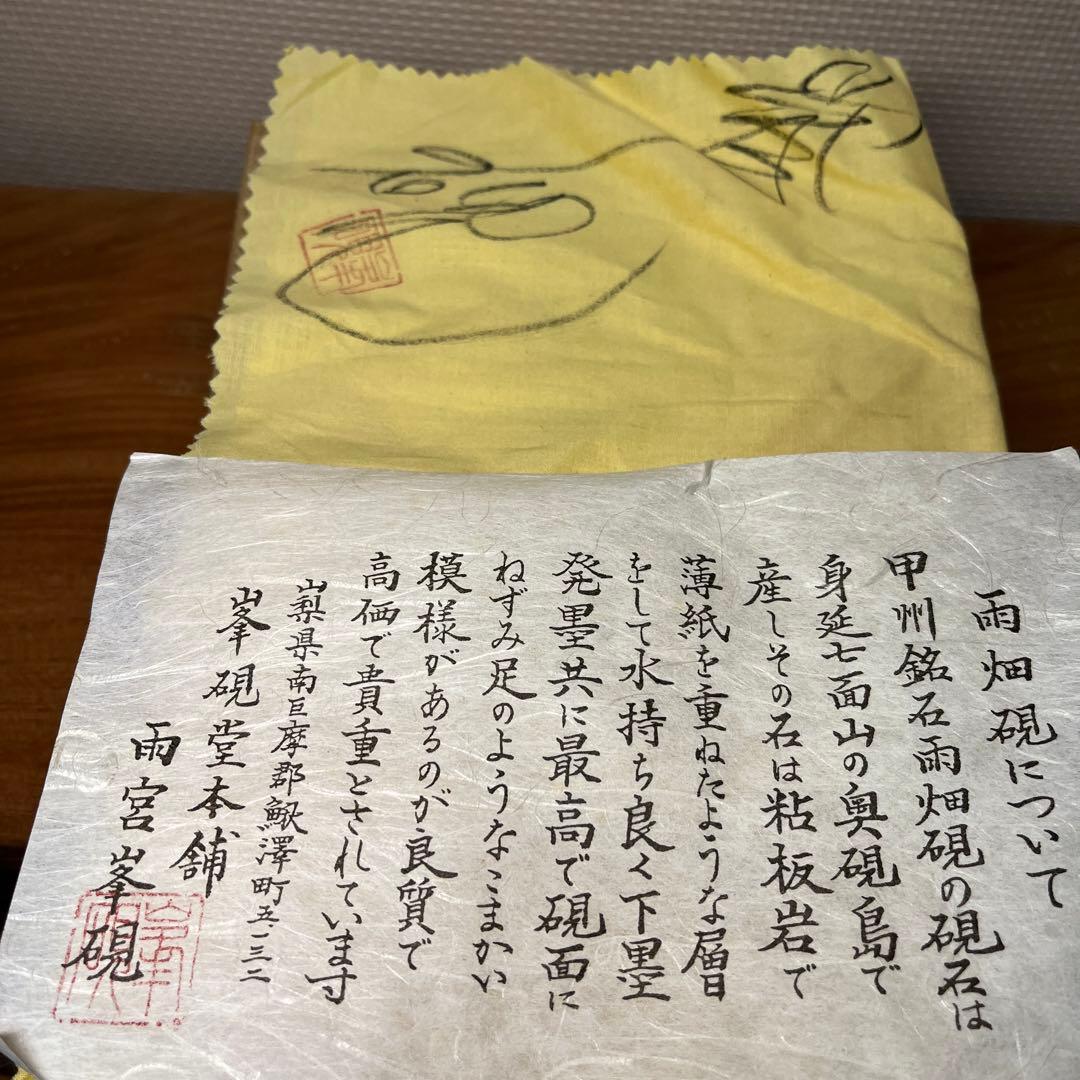 雨畑硯について
甲州銘石雨畑硯の硯石は
身延七面山の奥硯島で
産しその石は粘板岩で
薄紙を重ねたような層
をして水持ち良く下墨
発墨共に最高で硯面に
ねずみ足のようなこまかい
模様があるのが良質で
高価で貴重とされています
山梨県南巨摩郡鰍澤町五、一三二
峯硯堂本舗
雨宮峯硯